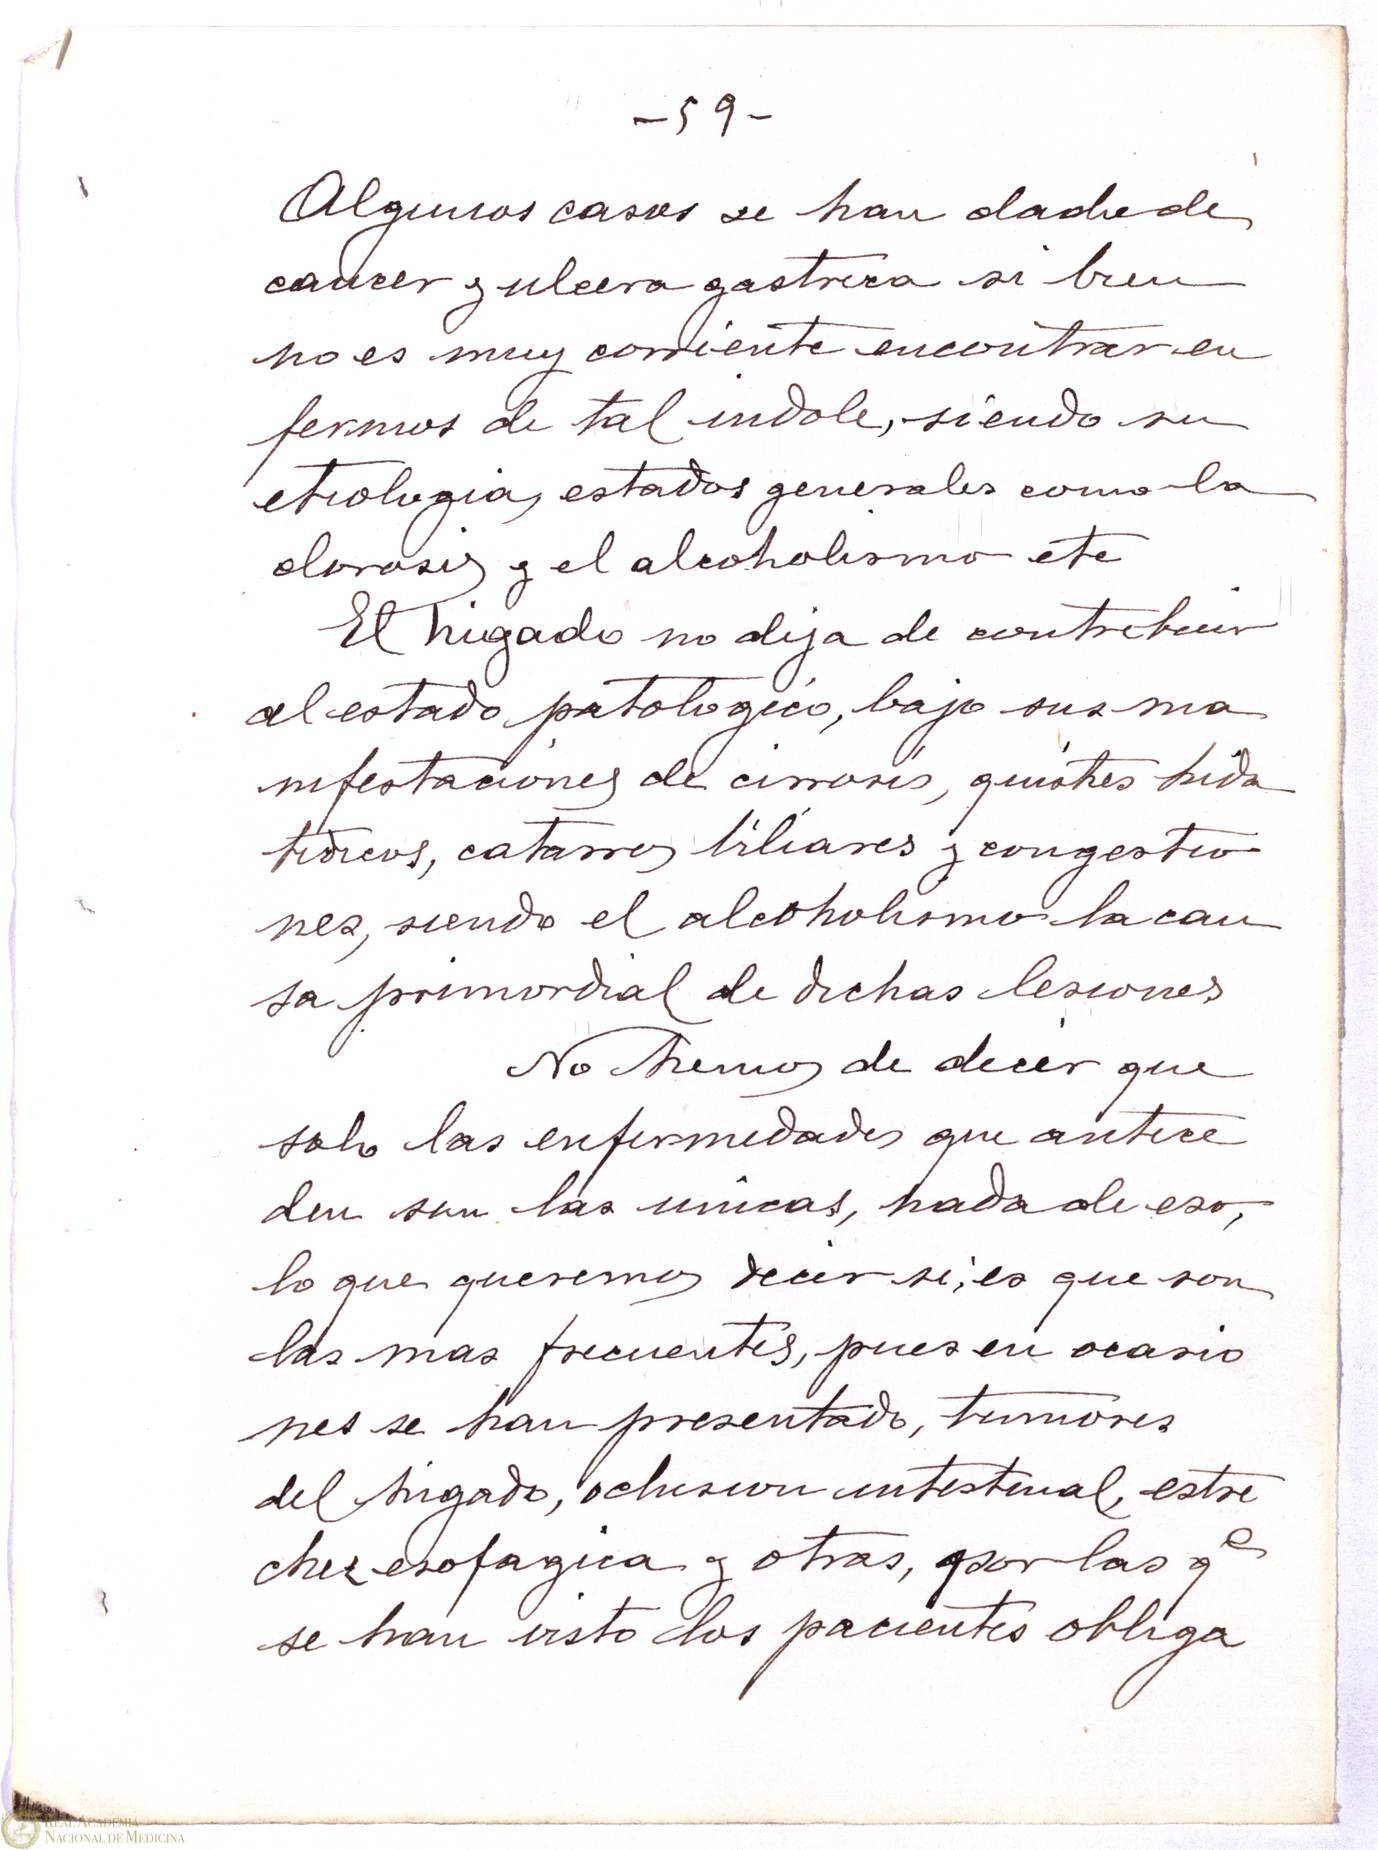 -59-
Algunos casos se han dado de
cancer y ulcera gastrica si bien
no es muy corriente encontrar en
fermos de tal indole, siendo su
etiologia, estados generales como la
clorosis y el alcoholismo etc
El higado no deja de contribuir
al estado patologico, bajo sus ma
nifestaciones de cirrosis, quistes hida
tidicos, catarros biliares y congestio
nes, siendo el alcoholismo la cau
sa primordial de dichas lesiones
No hemos de decir que
solo las enfermedades que antece
den son las unicas, nada de eso,
lo que queremos decir si; es que son
las mas frecuentes, pues en ocasio
nes se han presentado, tumores
del higado, oclusion intestinal, estre
chez esofagica y otras, por las qe
se han visto los pacientes obliga
REAL ACADEMIA
NACIONAL DE MEDICINA